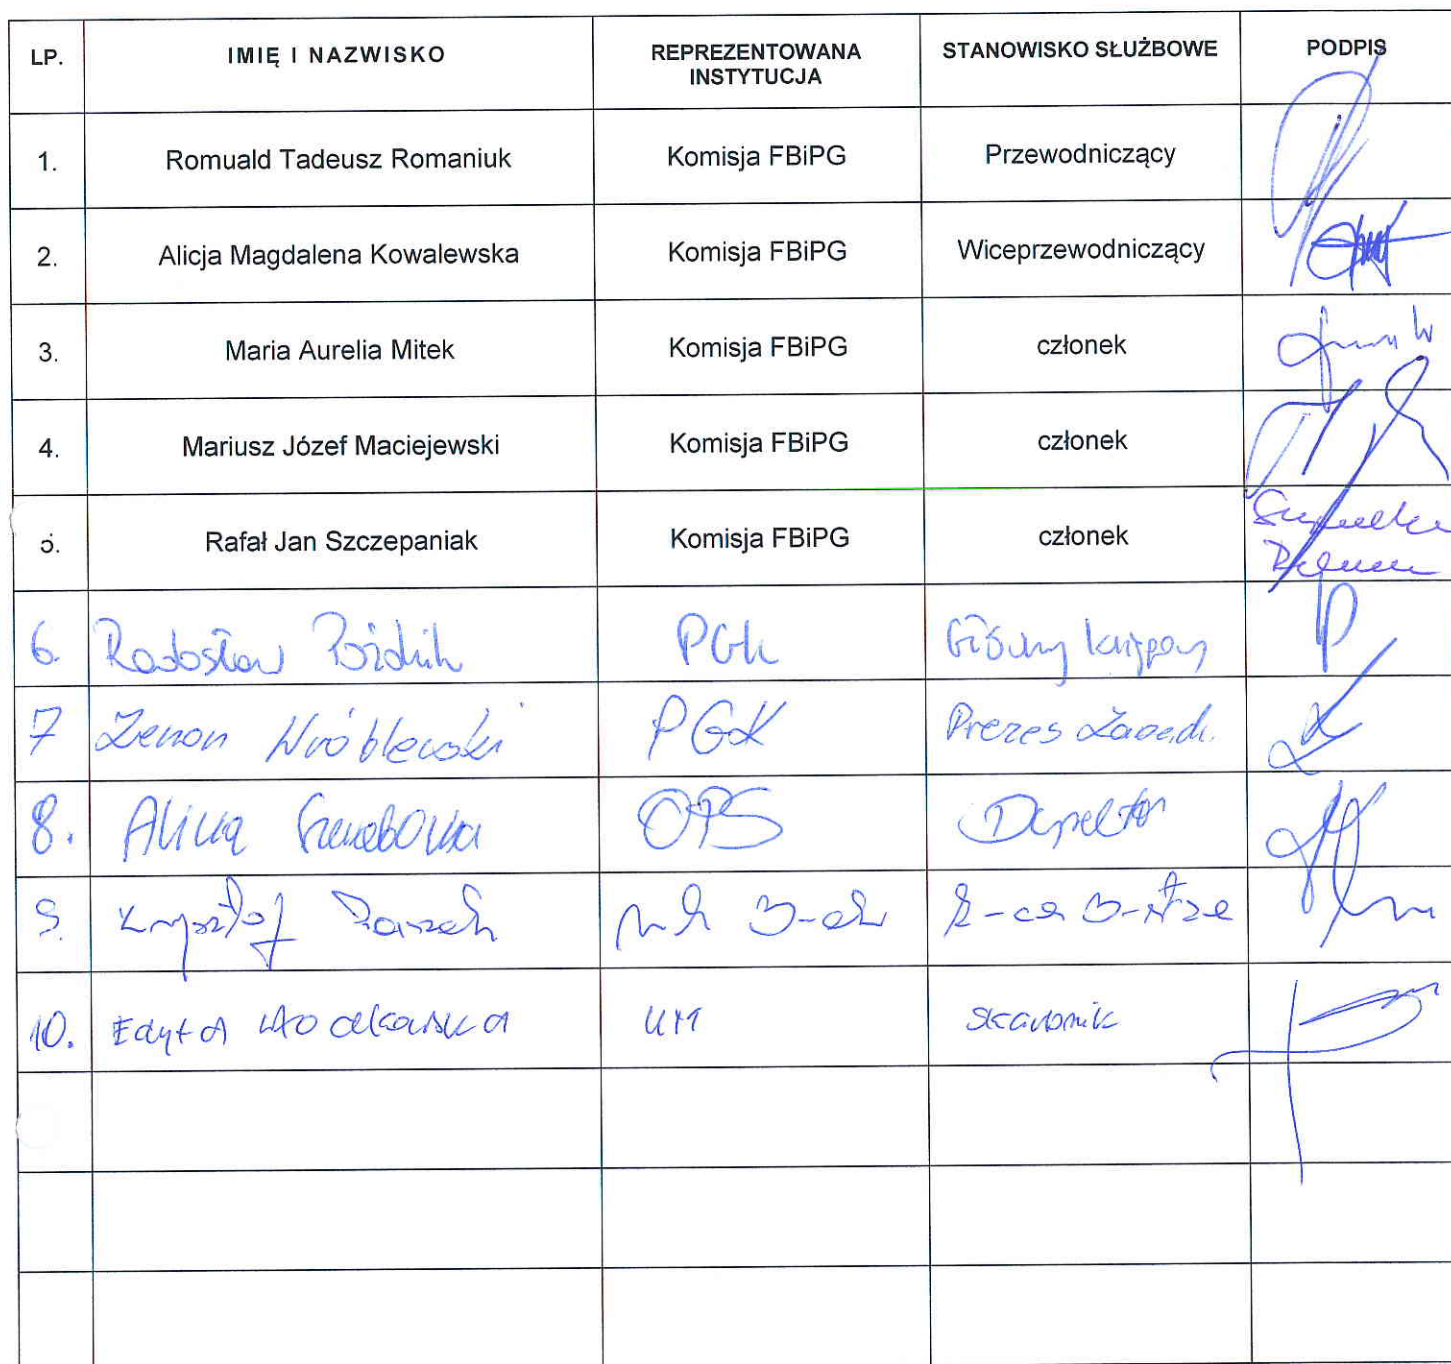 LP. IMIĘ I NAZWISKO REPREZENTOWANA INSTYTUCJA STANOWISKO SŁUŻBOWE PODPIS
1. Romuald Tadeusz Romaniuk Komisja FBiPG Przewodniczący
2. Alicja Magdalena Kowalewska Komisja FBiPG Wiceprzewodniczący
3. Maria Aurelia Mitek Komisja FBiPG członek
4. Mariusz Józef Maciejewski Komisja FBiPG członek
5. Rafał Jan Szczepaniak Komisja FBiPG członek
6. Radosław PGK Główny księgowy
7 Zenon Wróblewski PGK Prezes Zarządu
8. Alicja OPS Dyrektor
9. Krzysztof Z-ca B-strza
10. Edyta UM Skarbnik